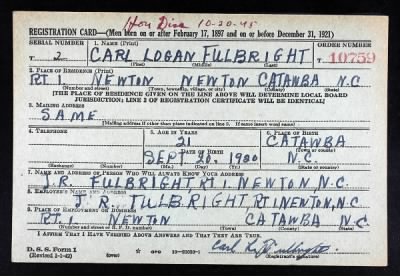 Hon Disc 10-20-45
REGISTRATION CARD—(Men born on or after February 17, 1897 and on or before December 31, 1921)
SERIAL NUMBER 1. NAME (Print) ORDER NUMBER
T 2 CARL LOGAN FULBRIGHT T 10759
(First) (Middle) (Last)
2. PLACE OF RESIDENCE (Print)
RT 1 NEWTON NEWTON CATAWBA N.C.
(Number and street) (Town, township, village, or city) (County) (State)
[THE PLACE OF RESIDENCE GIVEN ON THE LINE ABOVE WILL DETERMINE LOCAL BOARD
JURISDICTION; LINE 2 OF REGISTRATION CERTIFICATE WILL BE IDENTICAL]
3. MAILING ADDRESS
SAME
[Mailing address if other than place indicated on line 2. If same insert word same]
4. TELEPHONE 5. AGE IN YEARS 6. PLACE OF BIRTH
21 CATAWBA
DATE OF BIRTH (Town or county)
SEPT 20, 1920 N.C.
(Exchange) (Number) (Mo.) (Day) (Yr.) (State or country)
7. NAME AND ADDRESS OF PERSON WHO WILL ALWAYS KNOW YOUR ADDRESS
J.R. FULBRIGHT, RT 1, NEWTON, N.C.
8. EMPLOYER'S NAME AND ADDRESS
J. R. FULBRIGHT RT 1 NEWTON, N.C.
9. PLACE OF EMPLOYMENT OR BUSINESS
RT. 1 NEWTON CATAWBA N.C.
(Number and street or R. F. D. number) (Town) (County) (State)
I AFFIRM THAT I HAVE VERIFIED ABOVE ANSWERS AND THAT THEY ARE TRUE.
D. S. S. Form 1
(Revised 1-1-42) (over) Carl L. Fulbright